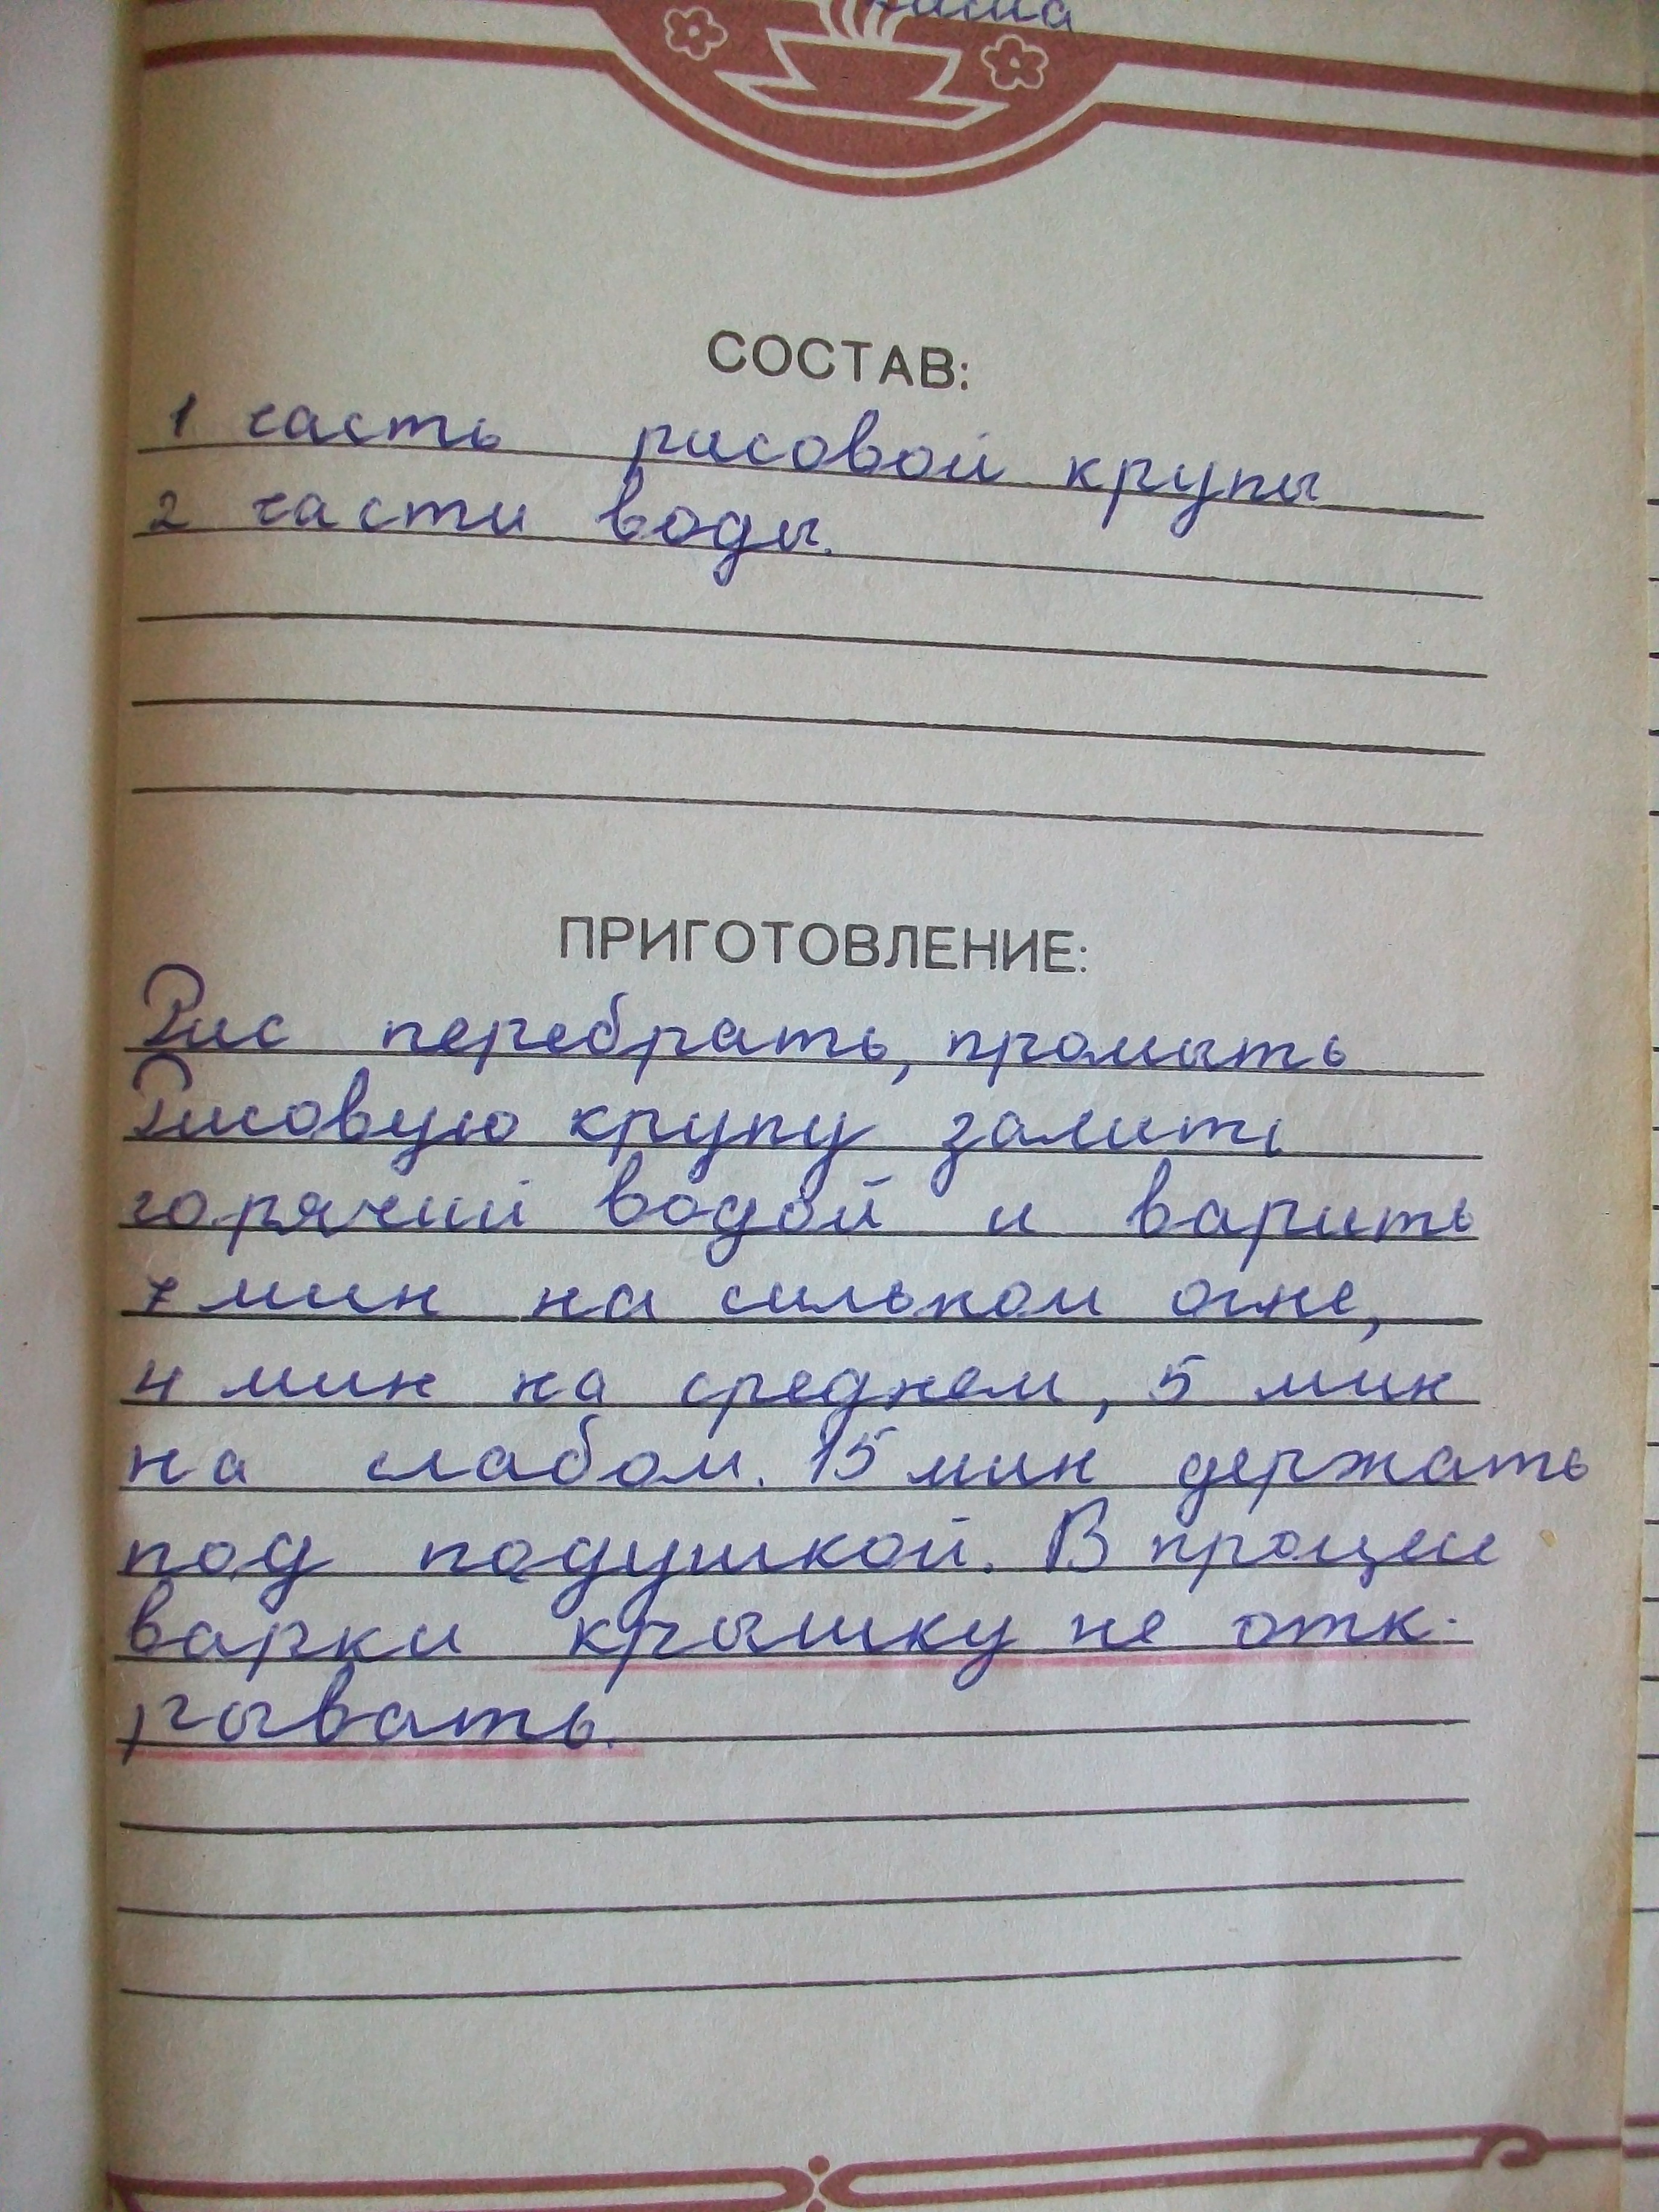 СОСТАВ:
1 часть рисовой крупы
2 части воды.
ПРИГОТОВЛЕНИЕ:
Рис перебрать, промыть
Рисовую крупу залить
горячий водой и варить
7 мин на сильном огне,
4 мин на среднем, 5 мин
на слабом. 15 мин держать
под подушкой. В процессе
варки крышку не отк-
рывать.